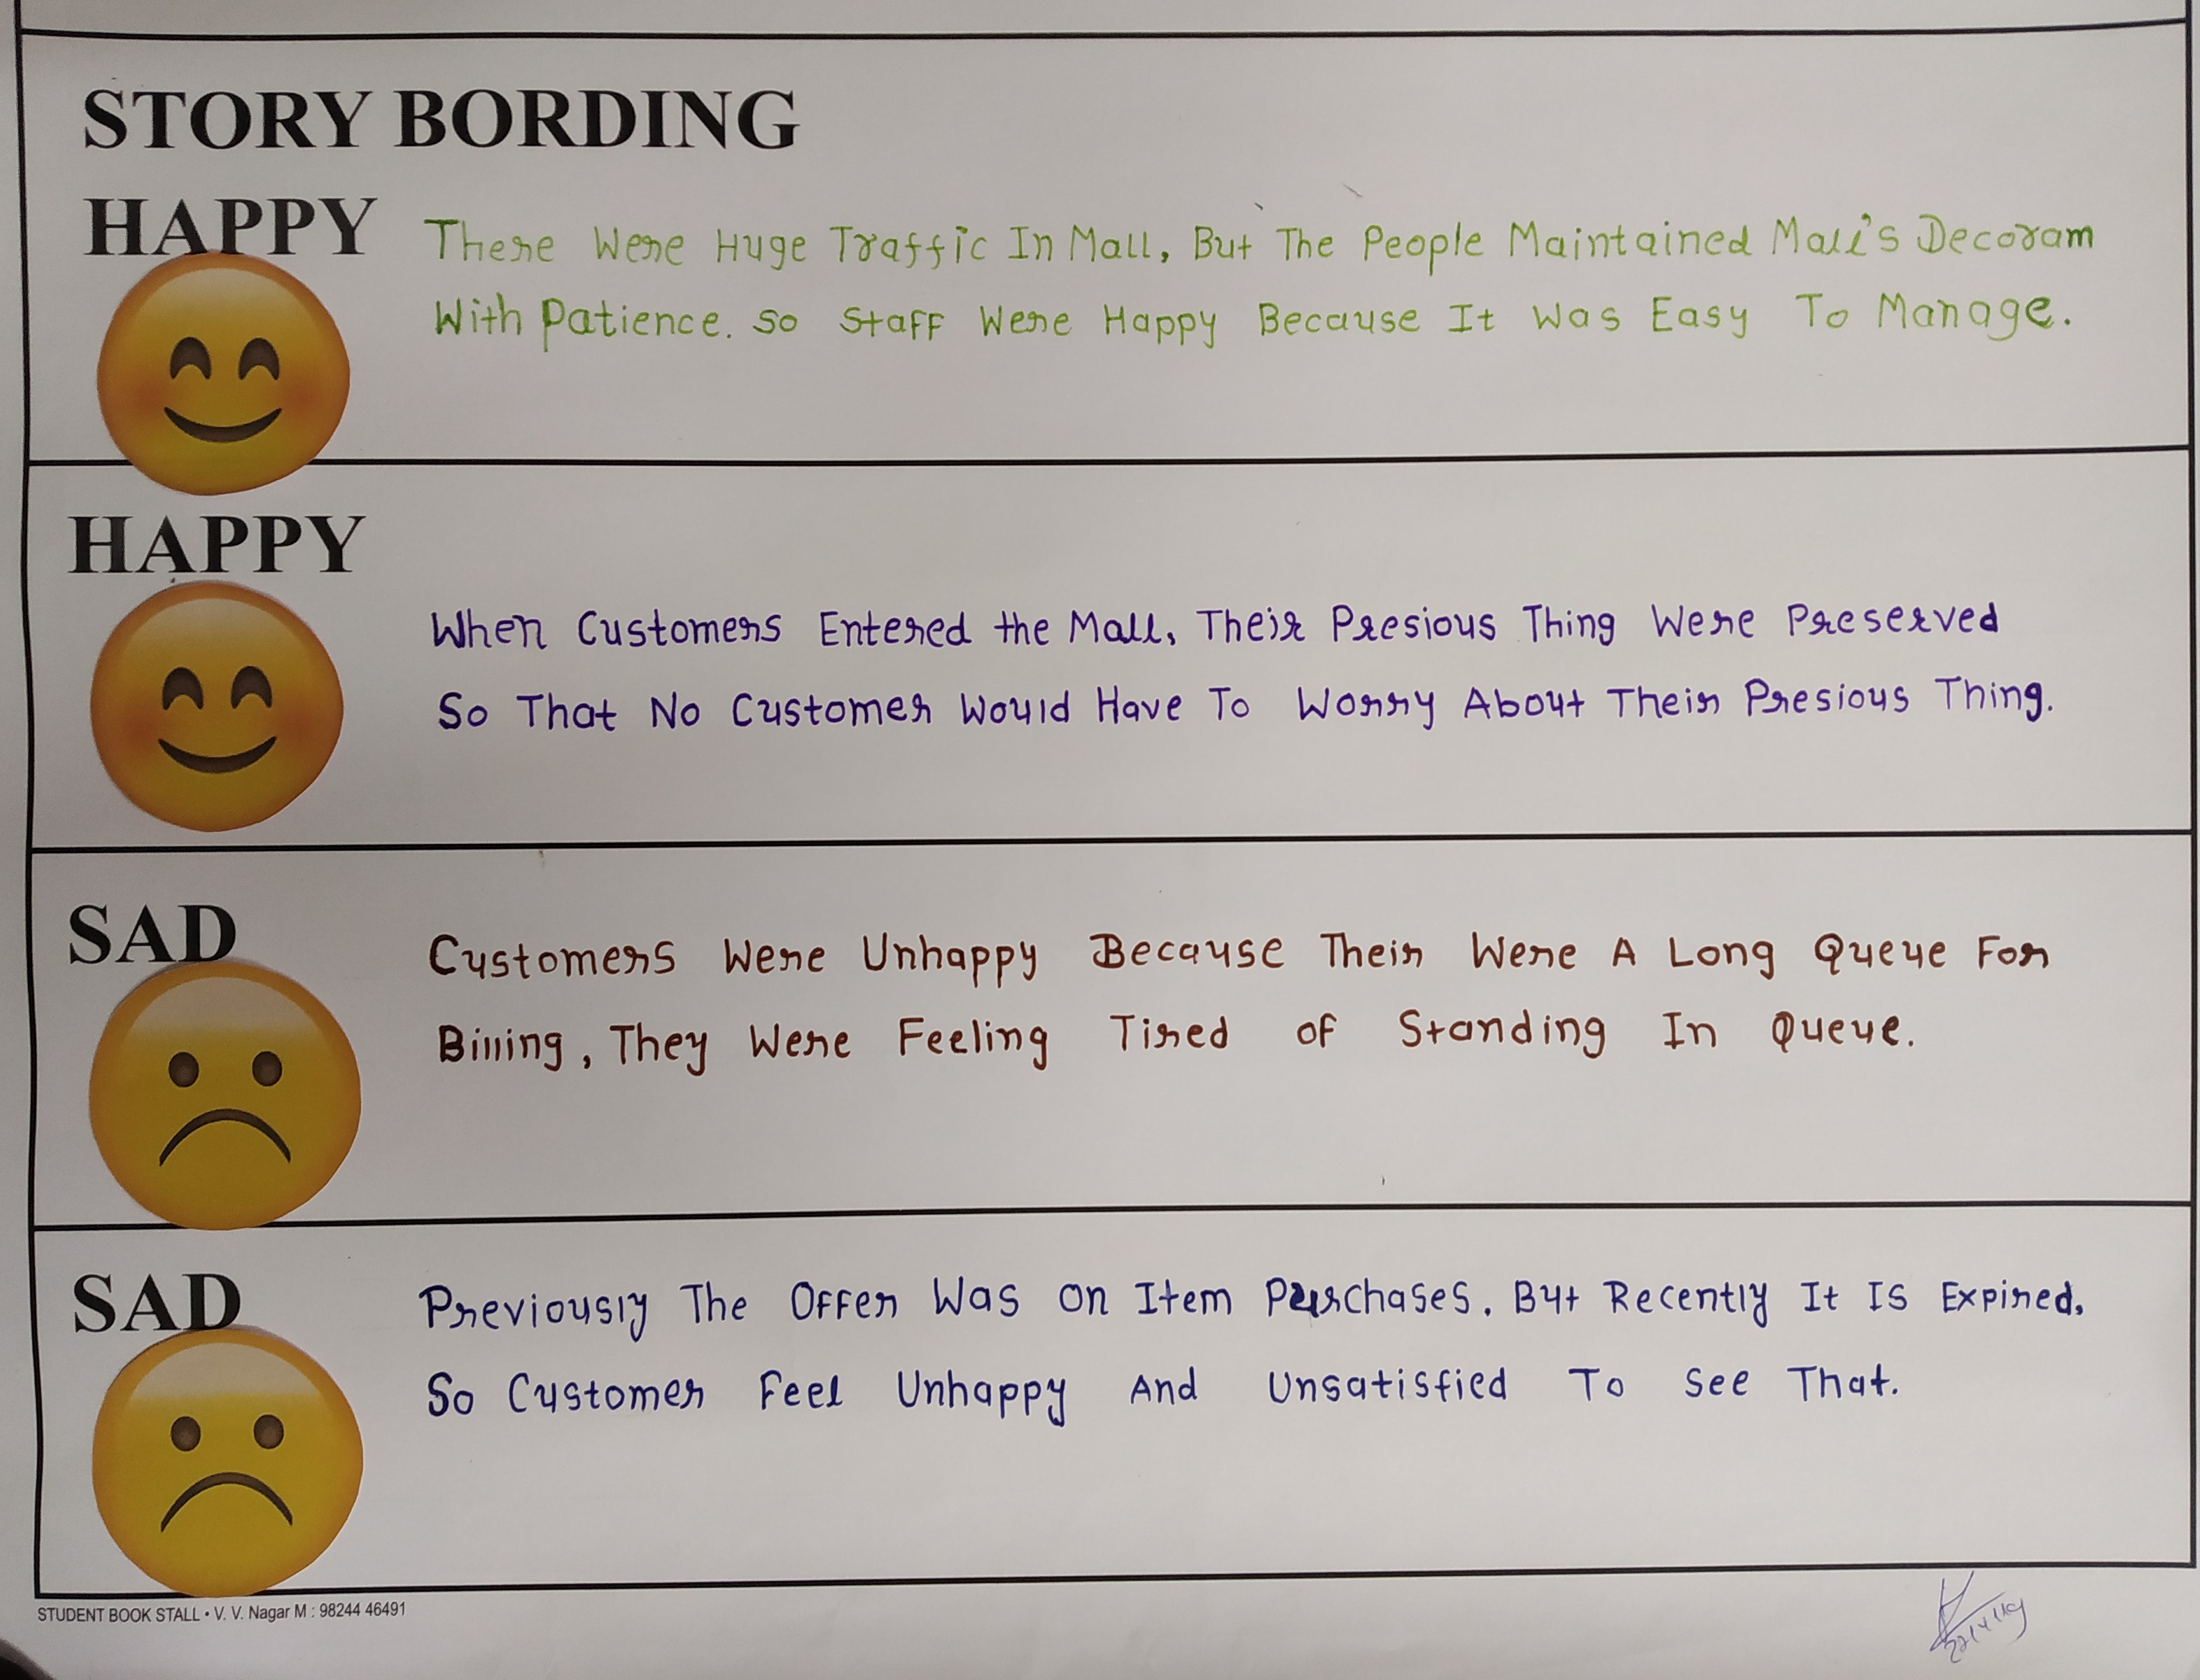 STORY BORDING
HAPPY
There Were Huge Traffic In Mall, But The People Maintained Mall's Decoram
With Patience. So Staff Were Happy Because It Was Easy To Manage.
HAPPY
When Customers Entered the Mall, Their Presious Thing Were Preserved
So That No Customer Would Have To Worry About Their Presious Thing.
SAD
Customers Were Unhappy Because Their Were A Long Queue For
Billing, They Were Feeling Tired Of Standing In Queue.
SAD
Previously The Offer Was On Item Purchases. But Recently It Is Expired.
So Customer Feel Unhappy And Unsatisfied To See That.
STUDENT BOOK STALL • V. V. Nagar M : 98244 46491